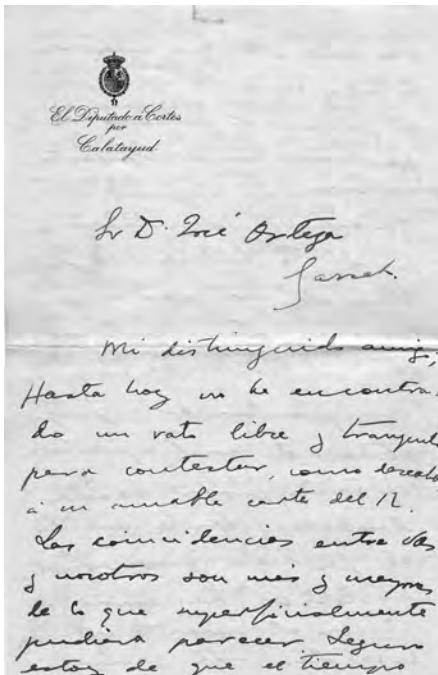 El Diputado á Cortes
por
Calatayud
Sr D. José Ortega
Gasset.
Mi distinguido amigo;
Hasta hoy no he encontra-
do un rato libre y tranquilo
para contestar, como deseaba
á su amable carta del 12.
Las coincidencias entre Vds
y nosotros son más y mayores
de lo que superficialmente
pudiera parecer. Seguro
estoy de que el tiempo